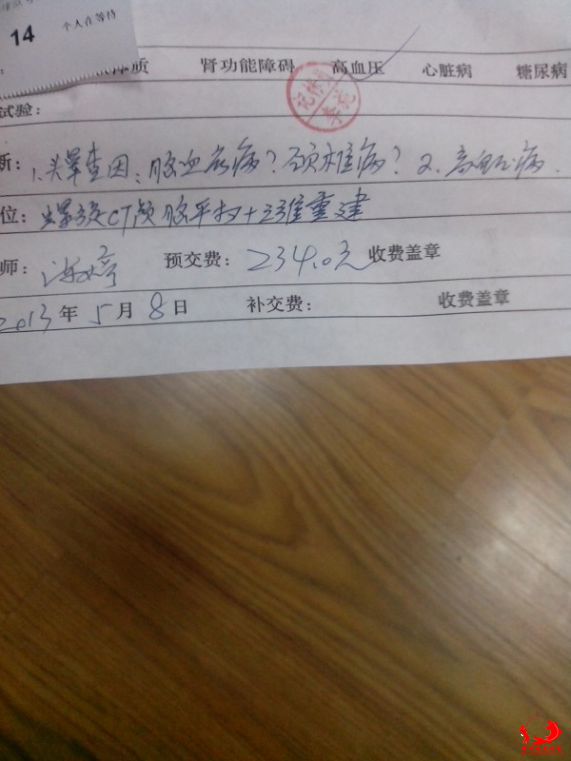 14 个人在等待
质 肾功能障碍 高血压 心脏病 糖尿病
试验:
断: 1.头晕查因:脑血管病?颈椎病? 2.高血压病.
位: 螺旋CT颅脑平扫+三维重建
师: 预交费: 234.0元 收费盖章
2013 年 5 月 8 日 补交费: 收费盖章